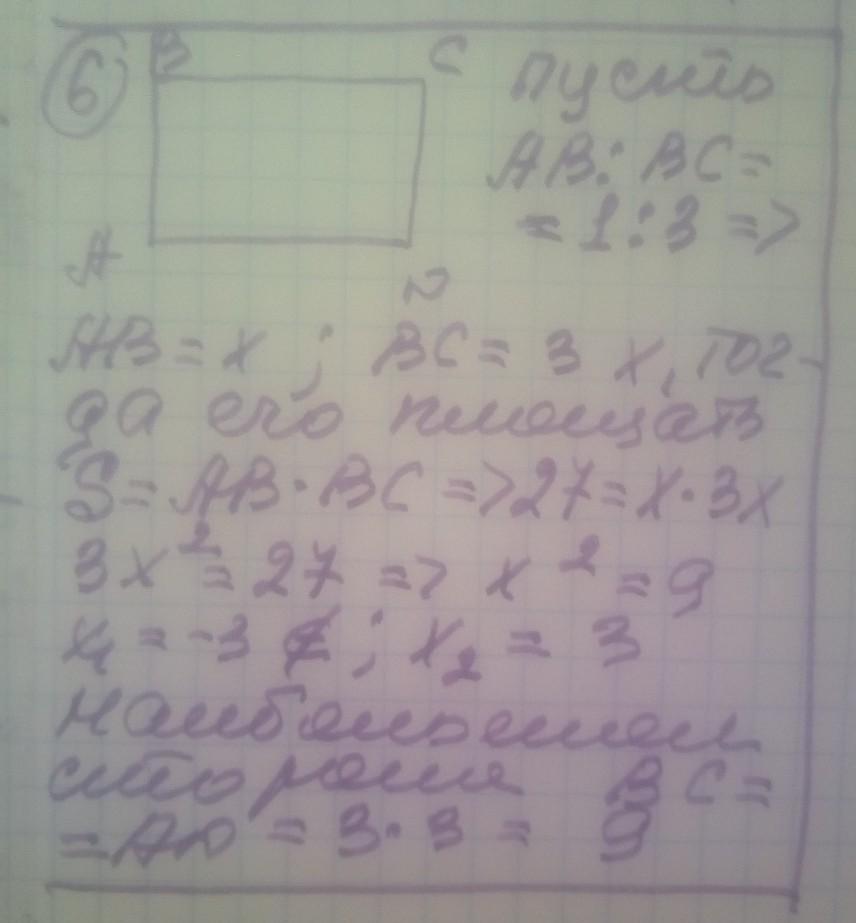 6 B C Пусть
AB : BC =
= 1 : 3 =>
A D
AB = x ; BC = 3x, тог-
да его площадь
S = AB · BC => 27 = x · 3x
3x² = 27 => x² = 9
x₁ = -3 ∉ ; x₂ = 3
Наибольшая
сторона BC =
= AD = 3 · 3 = 9